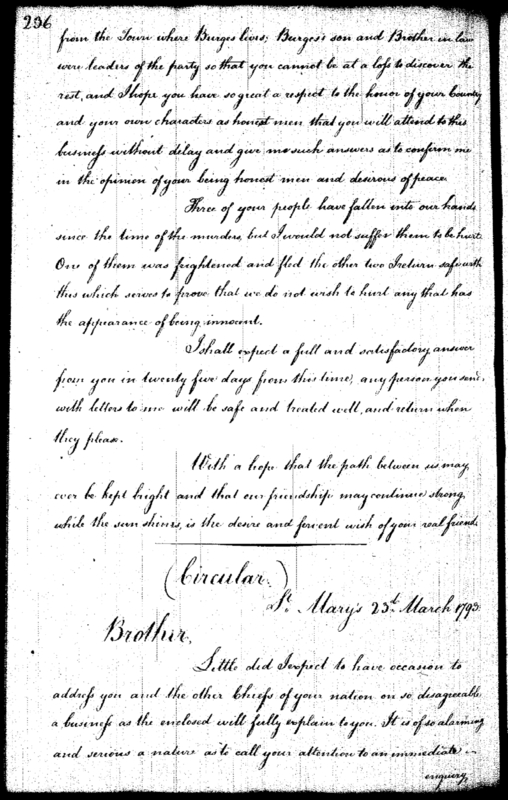 206
from the Town where Burges lives; Burges's son and Brother in law
were leaders of the party so that you cannot be at a loss to discover the
rest, and I hope you have so great a respect to the honor of your Country
and your own characters as honest men that you will attend to this
business without delay and give me such answers as to confirm me
in the opinion of your being honest men and desirous of peace.
Three of your people have fallen into our hands
since the time of the murders, but I would not suffer them to be hurt.
One of them was frightened and fled the other two I return safe with
this which serves to prove that we do not wish to hurt any that has
the appearance of being innocent.
I shall expect a full and satisfactory answer
from you in twenty five days from this time, any person you send
with letters to me will be safe and treated well, and return when
they please.
With a hope that the path between us may
ever be kept bright and that our friendship may continue strong
while the sun shines, is the desire and fervent wish of your real friend.
(Circular.)
St. Mary's 23d. March 1793
Brother,
Little did I expect to have occasion to
address you and the other Chiefs of your nation on so disagreeable
a business as the enclosed will fully explain to you. It is of so alarming
and serious a nature as to call your attention to an immediate
enquiry